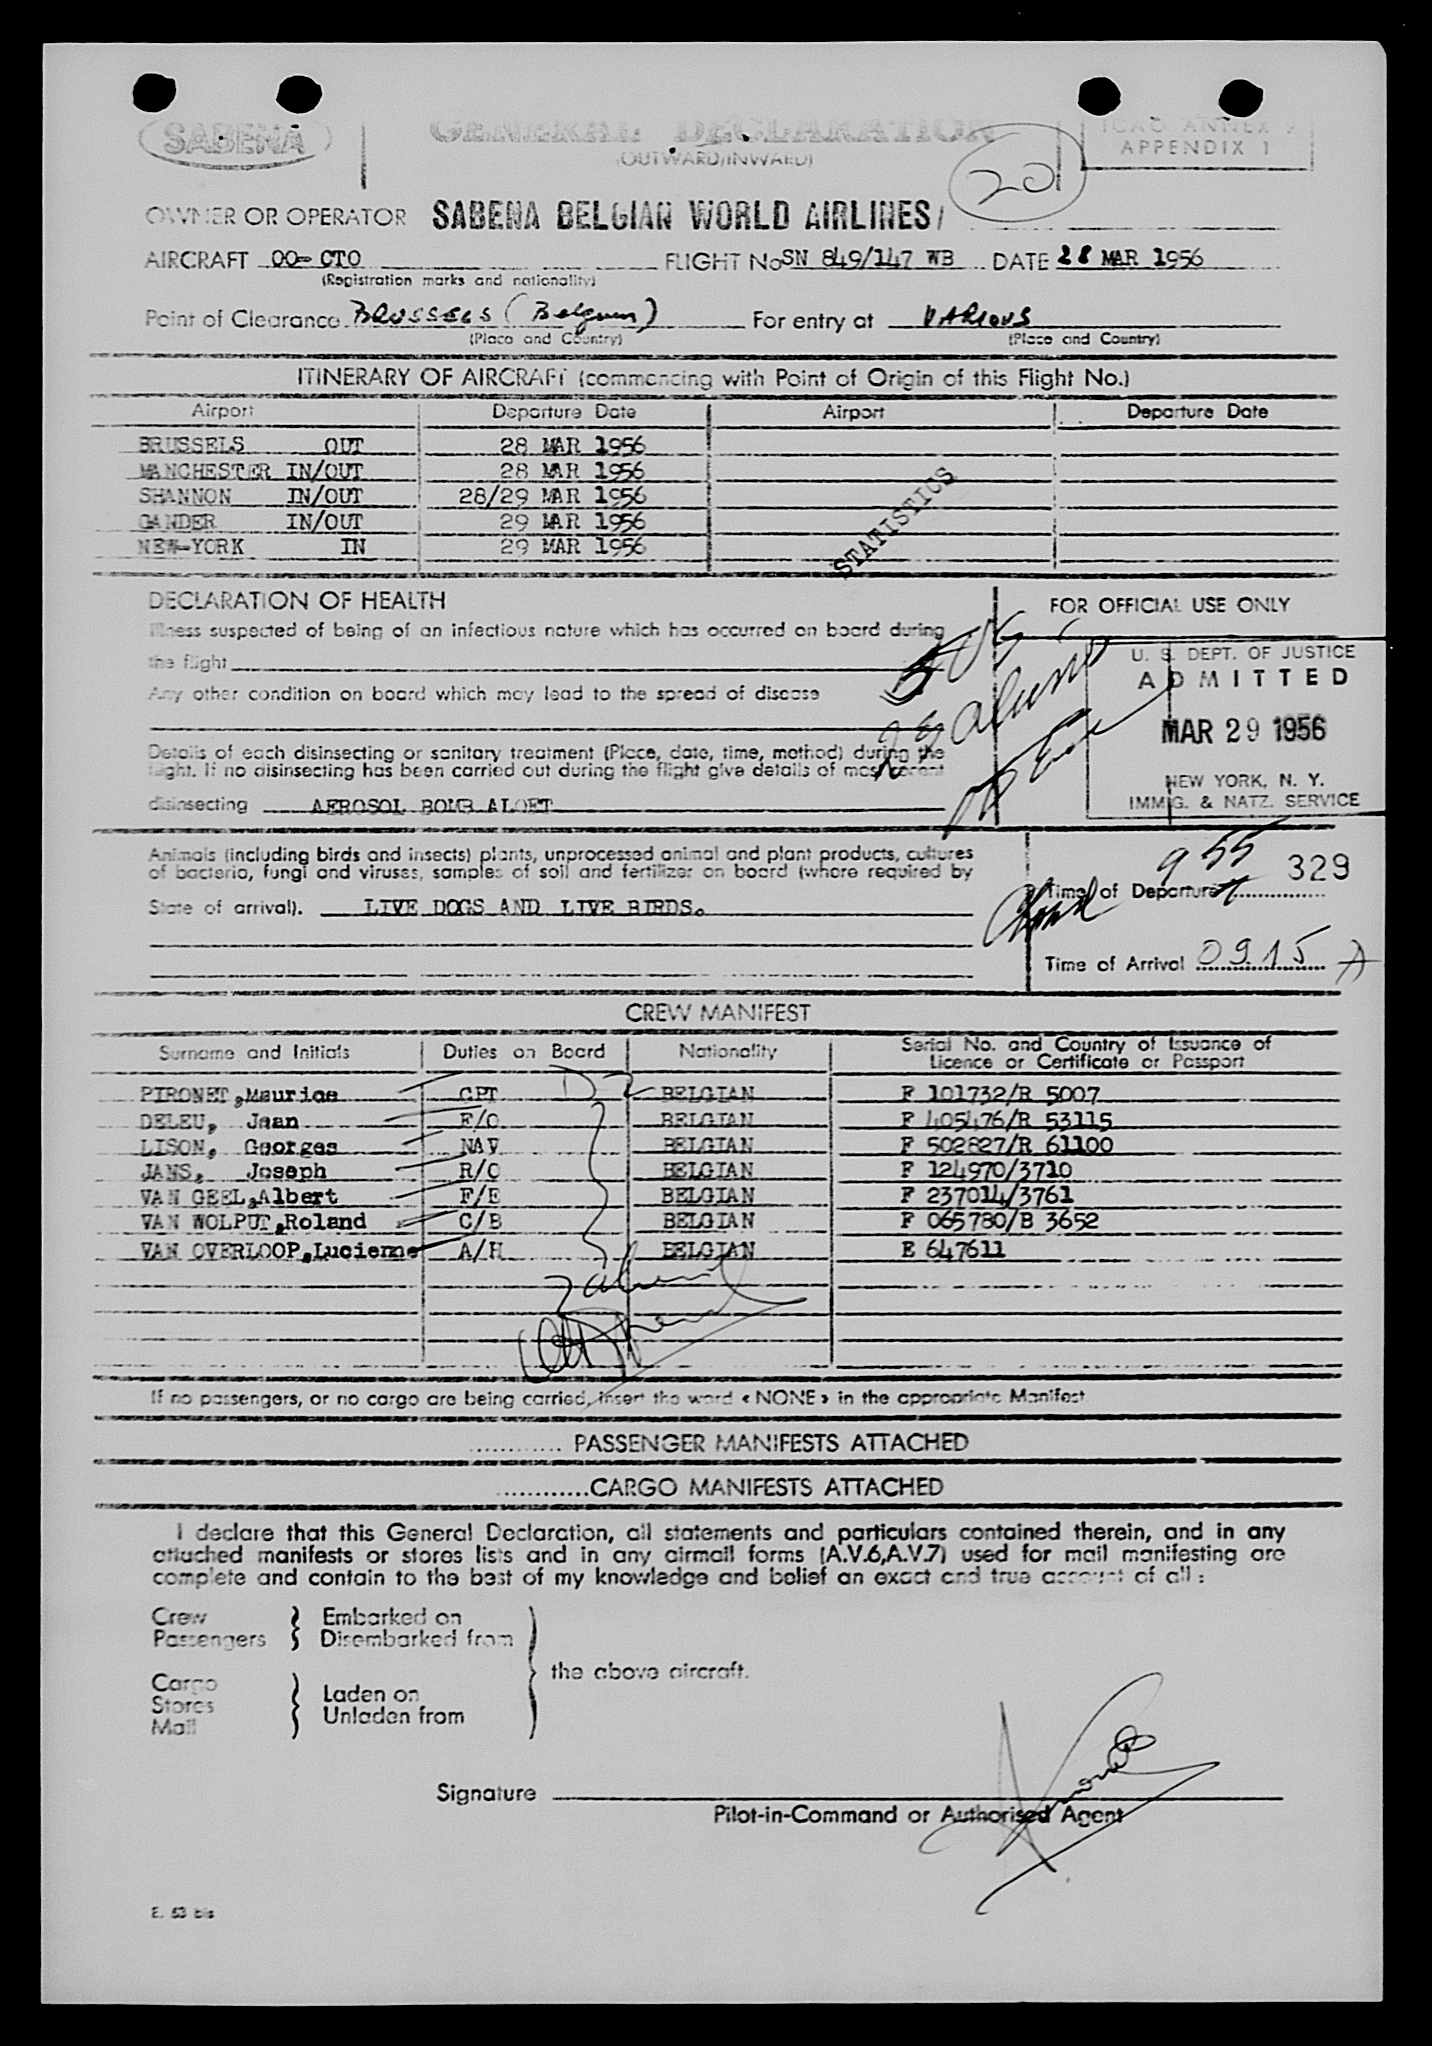 SABENA
GENERAL DECLARATION
(OUTWARD/INWARD)
ICAO ANNEX 9
APPENDIX 1
20
OWNER OR OPERATOR SABENA BELGIAN WORLD AIRLINES/
AIRCRAFT OO-CTO FLIGHT No SN 849/147 WB DATE 28 MAR 1956
(Registration marks and nationality)
Point of Clearance BRUSSELS (Belgium) For entry at VARIOUS
(Place and Country) (Place and Country)
ITINERARY OF AIRCRAFT (commencing with Point of Origin of this Flight No.)
Airport Departure Date Airport Departure Date
BRUSSELS OUT 28 MAR 1956
MANCHESTER IN/OUT 28 MAR 1956
SHANNON IN/OUT 28/29 MAR 1956
GANDER IN/OUT 29 MAR 1956
NEW-YORK IN 29 MAR 1956
STATISTICS
DECLARATION OF HEALTH
Illness suspected of being of an infectious nature which has occurred on board during
the flight
Any other condition on board which may lead to the spread of disease
Details of each disinsecting or sanitary treatment (Place, date, time, method) during the
flight. If no disinsecting has been carried out during the flight give details of most recent
disinsecting AEROSOL BOMB ALOFT
FOR OFFICIAL USE ONLY
U. S. DEPT. OF JUSTICE
ADMITTED
MAR 29 1956
NEW YORK, N. Y.
IMMIG. & NATZ. SERVICE
Animals (including birds and insects) plants, unprocessed animal and plant products, cultures
of bacteria, fungi and viruses, samples of soil and fertilizer on board (where required by
State of arrival). LIVE DOGS AND LIVE BIRDS.
955 329
Time of Departure
Time of Arrival 0915 A
CREW MANIFEST
Surname and Initials Duties on Board Nationality Serial No. and Country of Issuance of
Licence or Certificate or Passport
PIRONET,Maurice CPT BELGIAN F 101732/R 5007
DELEU, Jean F/O BELGIAN F 405476/R 53115
LISON, Georges NAV BELGIAN F 502827/R 61100
JANS, Joseph R/O BELGIAN F 124970/3710
VAN GEEL,Albert F/E BELGIAN F 237014/3761
VAN WOLPUT,Roland C/B BELGIAN F 065780/B 3652
VAN OVERLOOP,Lucienne A/H BELGIAN E 647611
If no passengers, or no cargo are being carried, insert the word « NONE » in the appropriate Manifest
............ PASSENGER MANIFESTS ATTACHED
............CARGO MANIFESTS ATTACHED
I declare that this General Declaration, all statements and particulars contained therein, and in any
attached manifests or stores lists and in any airmail forms (A.V.6,A.V.7) used for mail manifesting are
complete and contain to the best of my knowledge and belief an exact and true account of all :
Crew
Passengers
Embarked on
Disembarked from
Cargo
Stores
Mail
Laden on
Unladen from
the above aircraft.
Signature
Pilot-in-Command or Authorised Agent
E. 53 bis